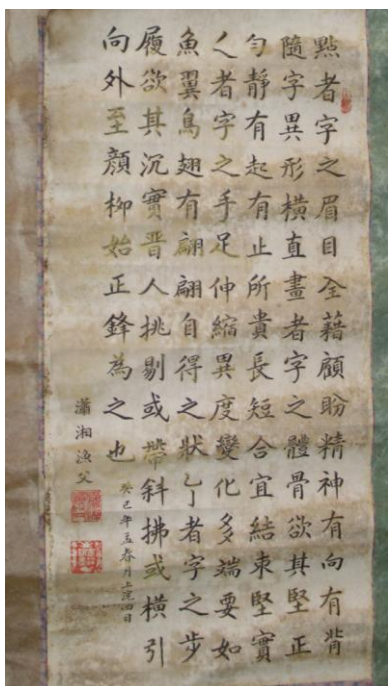 點者字之眉目全藉顧盼精神有向有背
隨字異形橫直畫者字之體骨欲其堅正
勻靜有起有止所貴長短合宜結束堅實
乀者字之手足伸縮異度變化多端要如
魚翼鳥翅有翩翩自得之狀乚者字之步
履欲其沉實晋人挑剔或帶斜拂或橫引
向外至顏柳始正鋒為之也
癸巳年孟春月上浣四日
瀟湘漁父